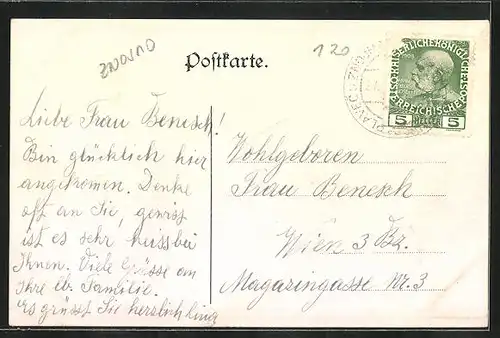 ZNOJMO
120
Postkarte.
KAISERLICHE KÖNIGLICHE
ÖSTERREICHISCHE POST
5 HELLER 5
Liebe Frau Benesch!
Bin glücklich hier
angekomen. Denke
oft an Sie, gewiss
ist es sehr heiss bei
Ihnen. Viele Grüsse an
Ihre lb. Familie.
es grüsst Sie herzlich Lina
Wohlgeboren
Frau Benesch
Wien 3 Bz.
Magazingasse Nr. 3